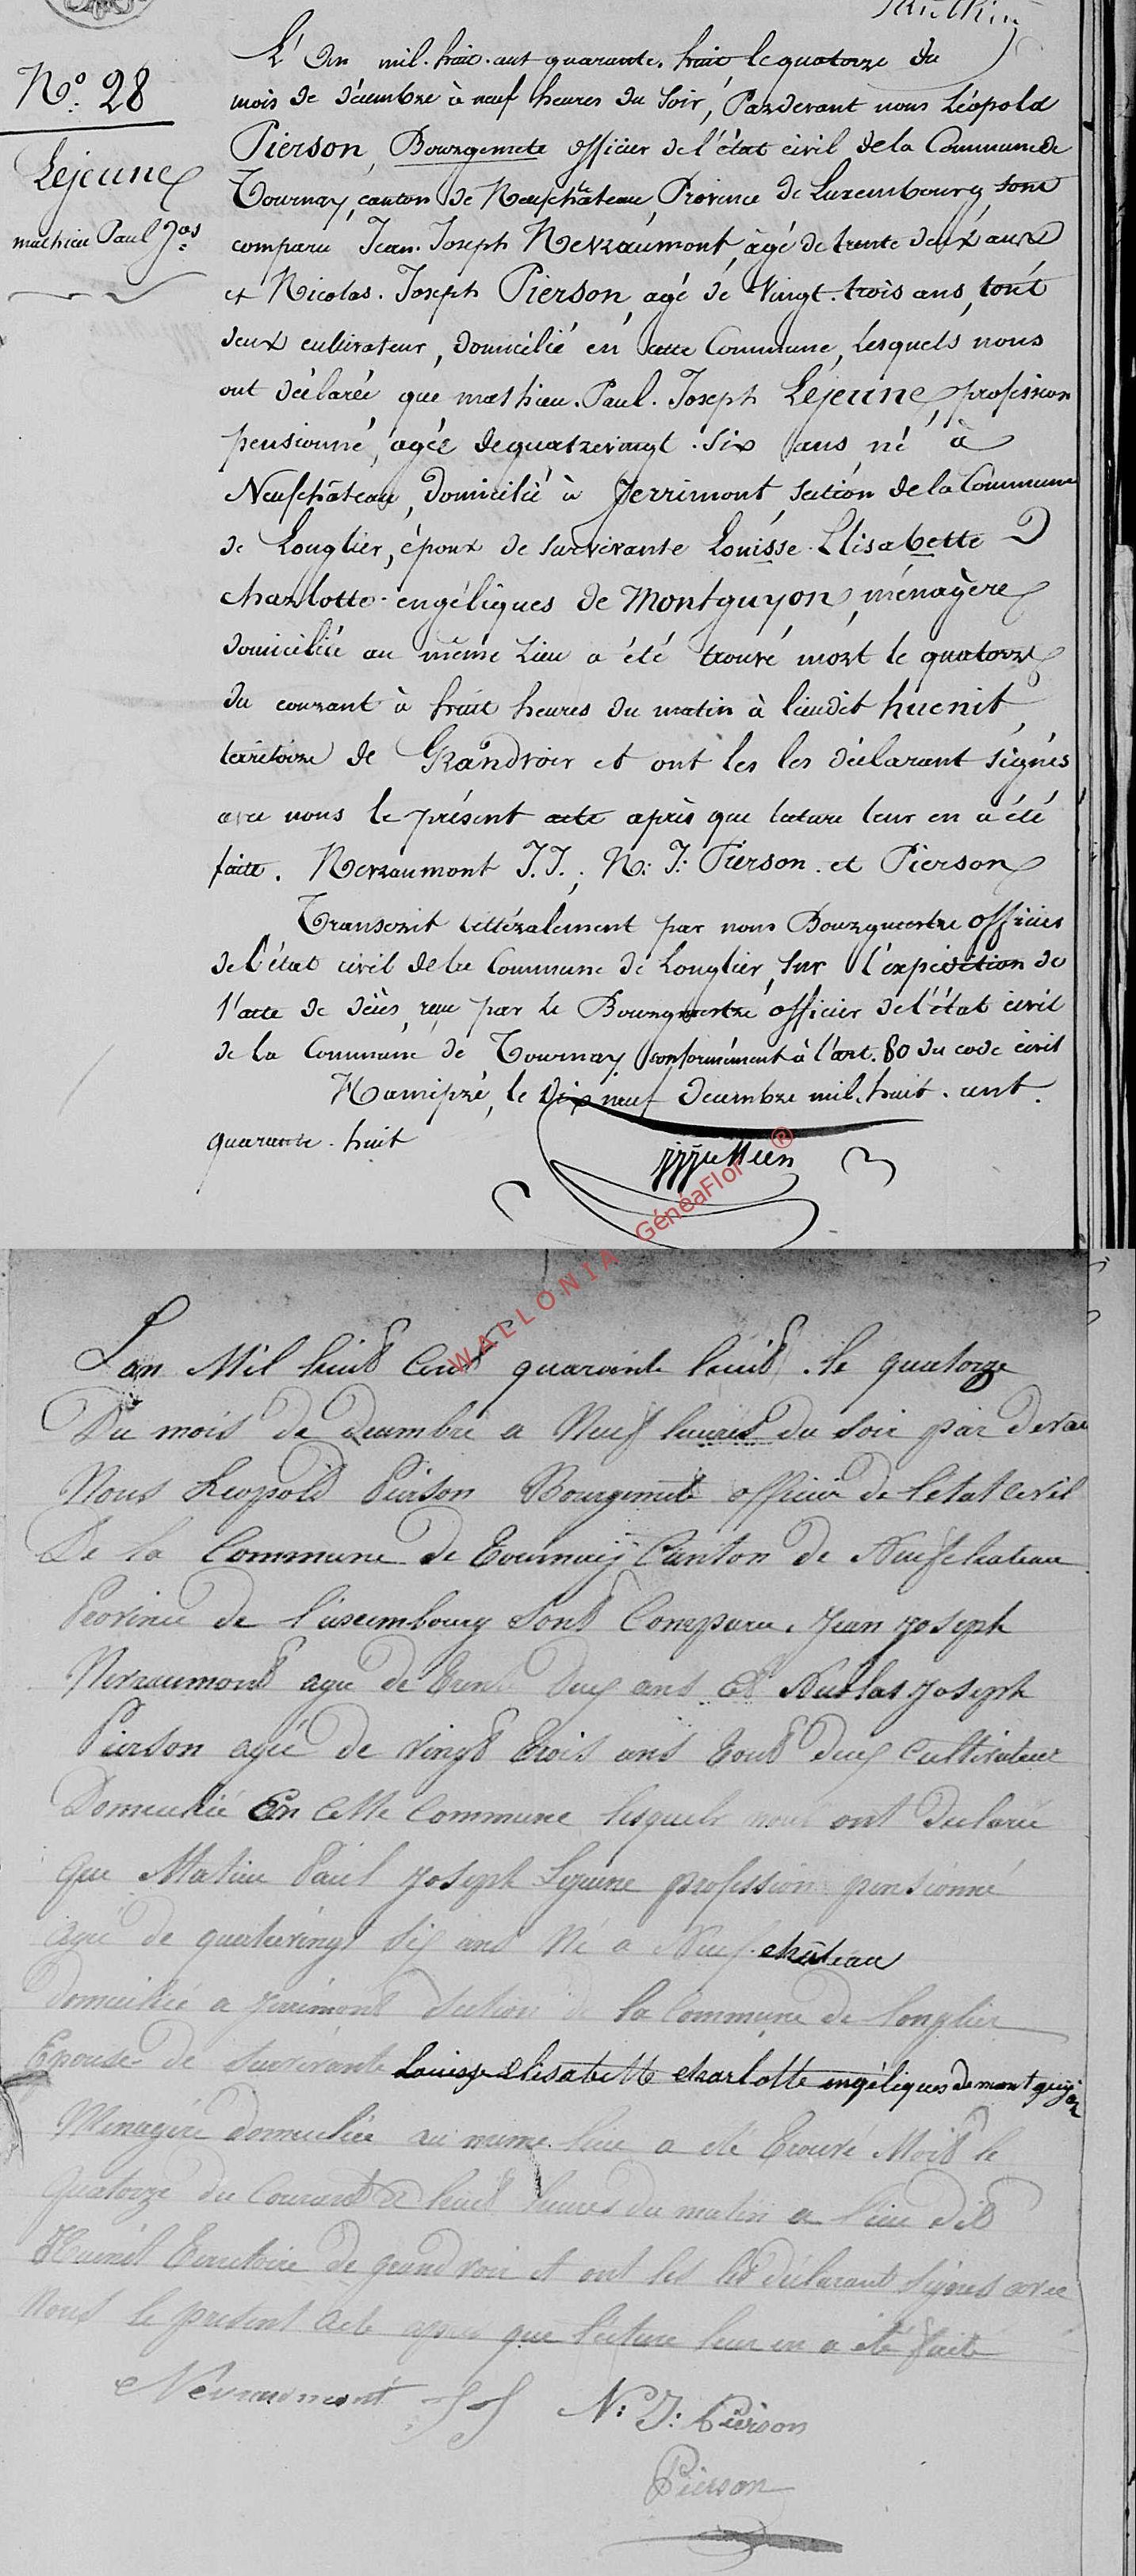 N.º 28
Lejeune
mathieu Paul Jos
L'An mil. huit. cent quarante. huit le quatorze du
mois de décembre à neuf heures du soir, Pardevant nous Léopold
Pierson, Bourgemete officier de l'état civil de la Commune de
Tournay, canton de Neufchâteau, Province de Luxembourg, sont
comparu Jean. Joseph Nevraumont, âgé de trente deux ans
et Nicolas. Joseph Pierson, agé de Vingt. trois ans, tout
deux cultivateur, domicilié en cette Commune, Lesquels nous
ont déclarée que mathieu. Paul. Joseph Lejeune, profession
pensionné, agée de quatrevingt. six ans né à
Neufchâteau, domicilié à Jerrimont, section de la Commune
de Longlier, époux de survivante Louisse. Elisabette
charlotte. engéliques de Montguyon, ménagère
domiciliée au même Lieu a été trouvé mort le quatorze
du courant à huit heures du matin à lieudit huenit,
territoire de Grandvoir et ont les les déclarant signés
avec nous le présent acte après que lecture leur en a été
faite. Nevraumont J.J.; N: J: Pierson. et Pierson
Transcrit littéralement par nous Bourgmestre officier
de l'état civil de la Commune de Longlier, sur l'expédition de
l'acte de décès, reçu par le Bourgmestre officier de l'état civil
de la Commune de Tournay conformément à l'art. 80 du code civil
Hamipré, le dix neuf décembre mil. huit. cent.
quarante. huit
WALLONIA GénéaFlor ®
Lan Mil huit Cent quarante huit. le quatorze
Du mois de decembre a Neuf heures du soir par devan
Nous Leopold Pierson Bourgemete officier de letat civil
De la Commune de Tournay Canton de Neufchateau
Province de Luxembourg sont Comparu Jean Joseph
Nevraumont agée de trente deux ans et Nicolas Joseph
Pierson agée de vingt trois ans tout deux Cultivateur
Domicilié En cette Commune lesquels nous ont Declarée
Que Matieu Paul Joseph Lejeune profession pensionné
agé de quatrevingt six ans Né a Neuf.château
domicilié a Jerrimont section de la Commune de Longlier
Epouse de survivante Louisse Elisabette charlotte engéliques de montguyon
Menagère domiciliée au meme lieu a eté trouvé Mort le
quatorze du Courant a huit heures du matin a lieu dit
Huenit territoire de grandvoir et ont les les déclarant signés avec
Nous le present acte apres que lecture leur en a eté faite
Névraumont J J N: J: Pierson
Pierson